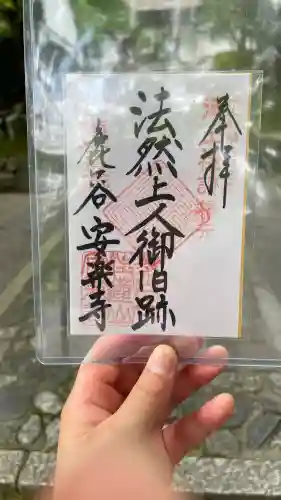 奉拝
法然上人御旧跡
鹿谷安楽寺